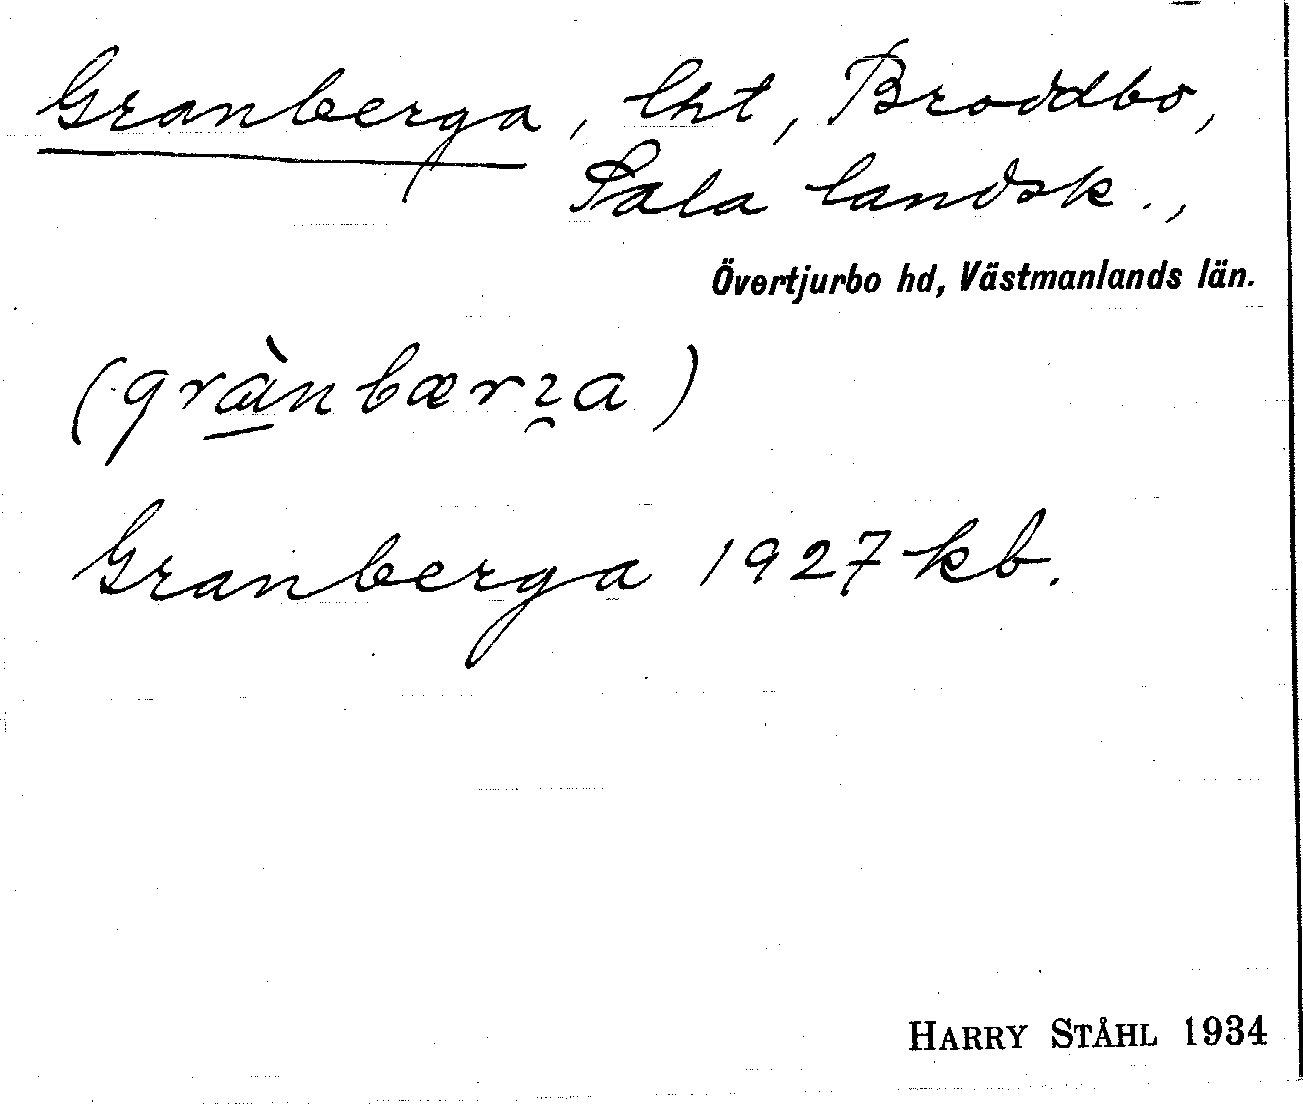 Granberga, lht, Broddbo,
Sala landsk.,
Övertjurbo hd, Västmanlands län.
Granberga 1927 kb.
HARRY STÅHL 1934